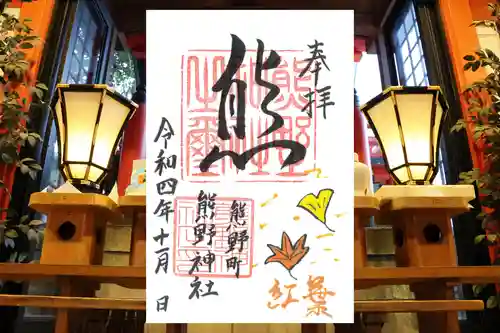 奉拝
熊
熊野町
熊野神社
令和四年十一月 日
紅葉